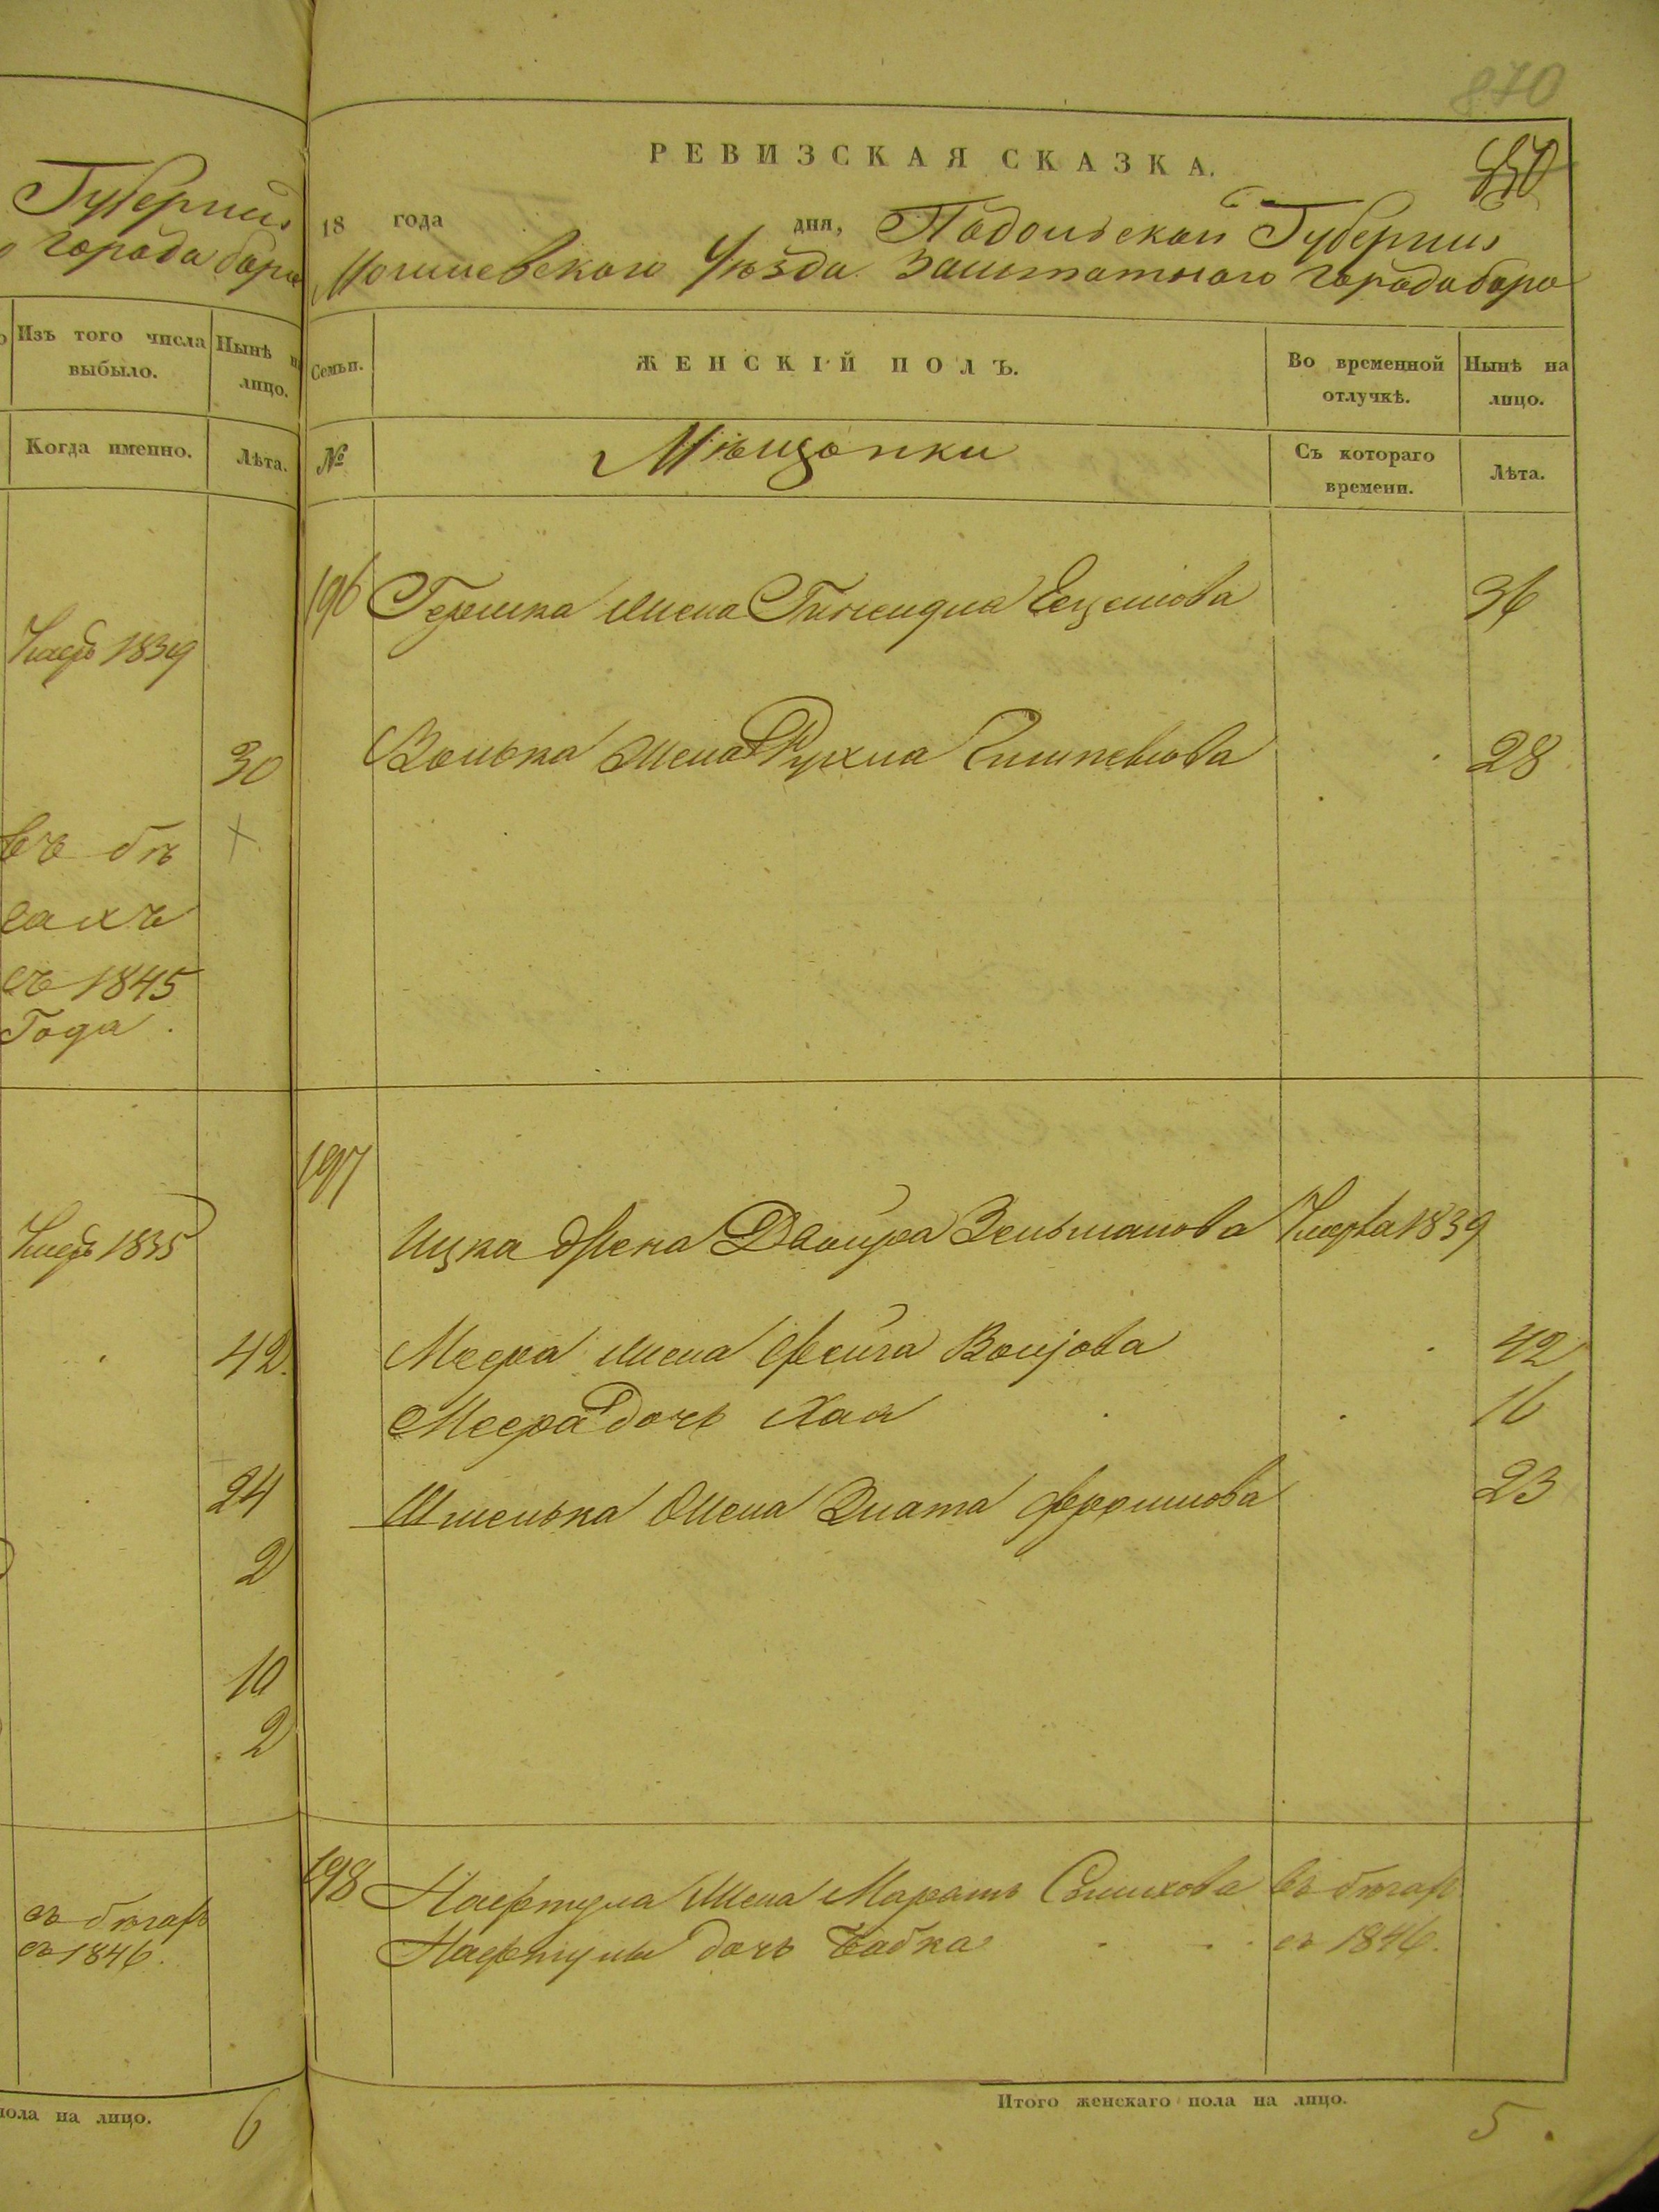 Губерніи
города бара
Изъ того числа выбыло.
Нынѣ на лицо.
Когда именно.
Лѣта.
1839
30
въ бѣ
гахъ
съ 1845
Года.
1835
42.
24
2
10
2
въ бѣгахъ
съ 1846.
пола на лицо.
6
870
РЕВИЗСКАЯ СКАЗКА.
18 года дня, Подольской Губерніи
Могилевскаго Уѣзда Заштатнаго города бара
Семьи.
ЖЕНСКІЙ ПОЛЪ.
Во временной отлучкѣ.
Нынѣ на лицо.
№
Мѣщанки
Съ котораго времени.
Лѣта.
196 Гершка жена 36
Волька жена Рухла 28
197
Ицка жена Двойра Зельманова Умерла 1839
Меера жена Фейга 42
Меера дочь Хая 16
Шмелька жена Злата 23
198 Нафтула жена въ бѣгах
Нафтулы дочь Бабка съ 1846.
Итого женскаго пола на лицо.
5.